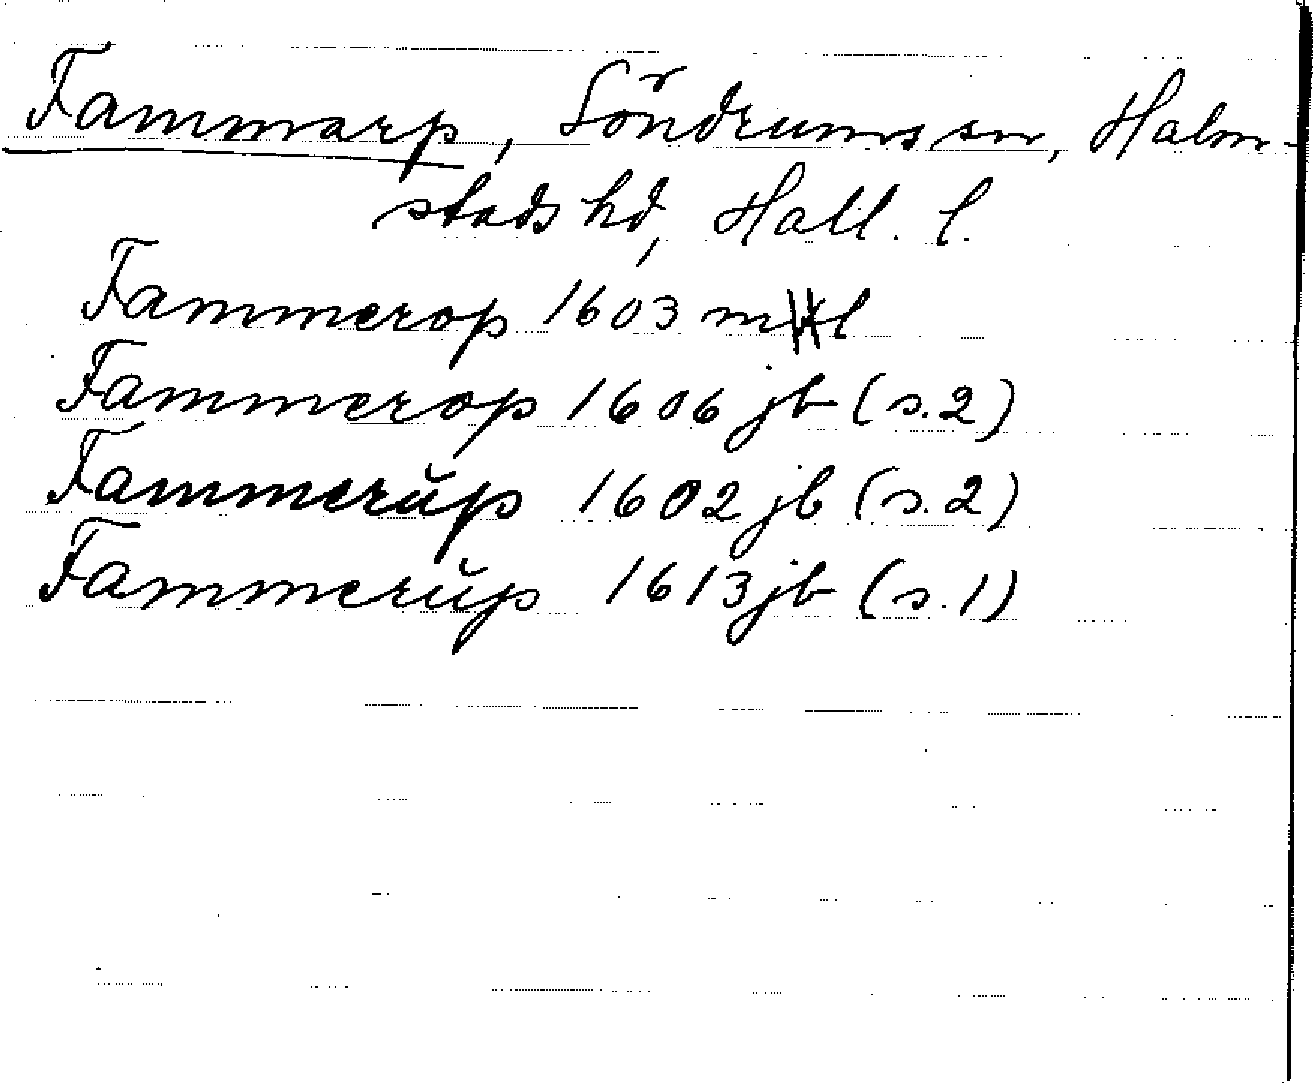 Fammarp, Söndrums sn, Halm-
stads hd, Hall. l.
Fammerop 1603 ml
Fammerop 1606 jb (s. 2)
Fammerŭp 1602 jb (s. 2)
Fammerŭp 1613 jb (s. 1)